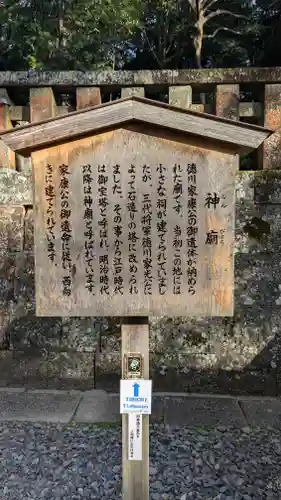 神廟
しんびょう
徳川家康公の御遺体が納めら
れた廟です。当初この地には
小さな祠が建てられていまし
たが、三代将軍徳川家光公に
よって石造りの塔に改められ
ました。その事から江戸時代
は御宝塔と呼ばれ、明治時代
以降は神廟と呼ばれています。
家康公の御遺命に従い、西向
きに建てられています。